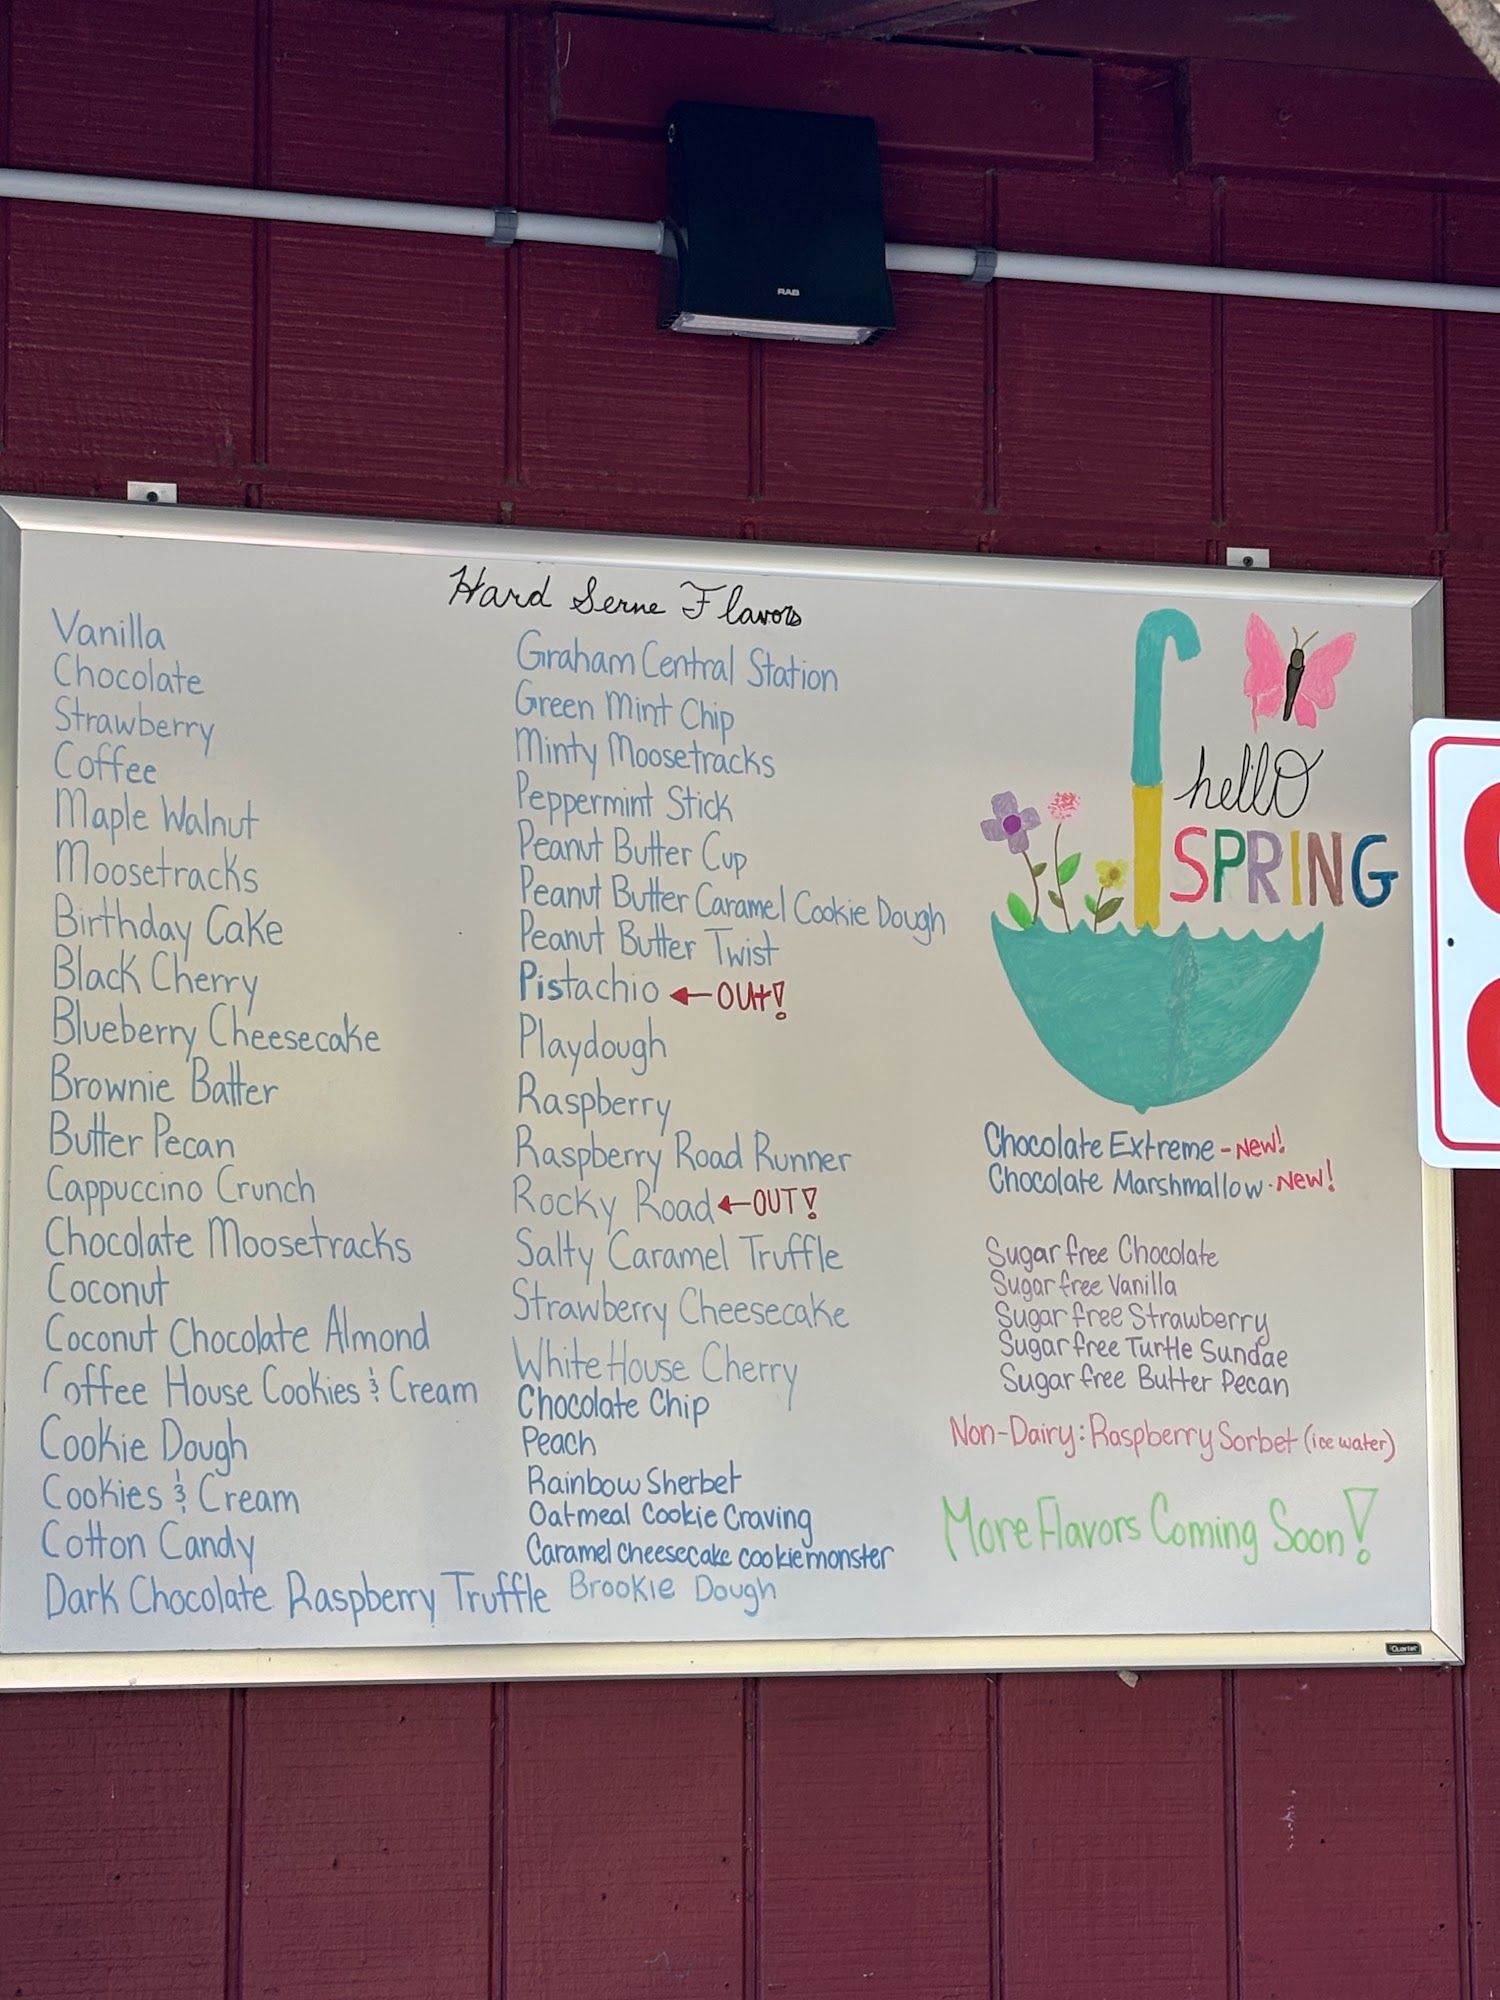 RAB
Hard Serve Flavors
Vanilla
Chocolate
Strawberry
Coffee
Maple Walnut
Moosetracks
Birthday Cake
Black Cherry
Blueberry Cheesecake
Brownie Batter
Butter Pecan
Cappuccino Crunch
Chocolate Moosetracks
Coconut
Coconut Chocolate Almond
Coffee House Cookies & Cream
Cookie Dough
Cookies & Cream
Cotton Candy
Dark Chocolate Raspberry Truffle
Graham Central Station
Green Mint Chip
Minty Moosetracks
Peppermint Stick
Peanut Butter Cup
Peanut Butter Caramel Cookie Dough
Peanut Butter Twist
Pistachio ← OUt!
Playdough
Raspberry
Raspberry Road Runner
Rocky Road ← OUT!
Salty Caramel Truffle
Strawberry Cheesecake
White House Cherry
Chocolate Chip
Peach
Rainbow Sherbet
Oatmeal Cookie Craving
Caramel cheesecake cookiemonster
Brookie Dough
hello
SPRING
Chocolate Extreme - New!
Chocolate Marshmallow - New!
Sugar free Chocolate
Sugar free Vanilla
Sugar free Strawberry
Sugar free Turtle Sundae
Sugar free Butter Pecan
Non-Dairy: Raspberry Sorbet (ice water)
More Flavors Coming Soon!
Quartet